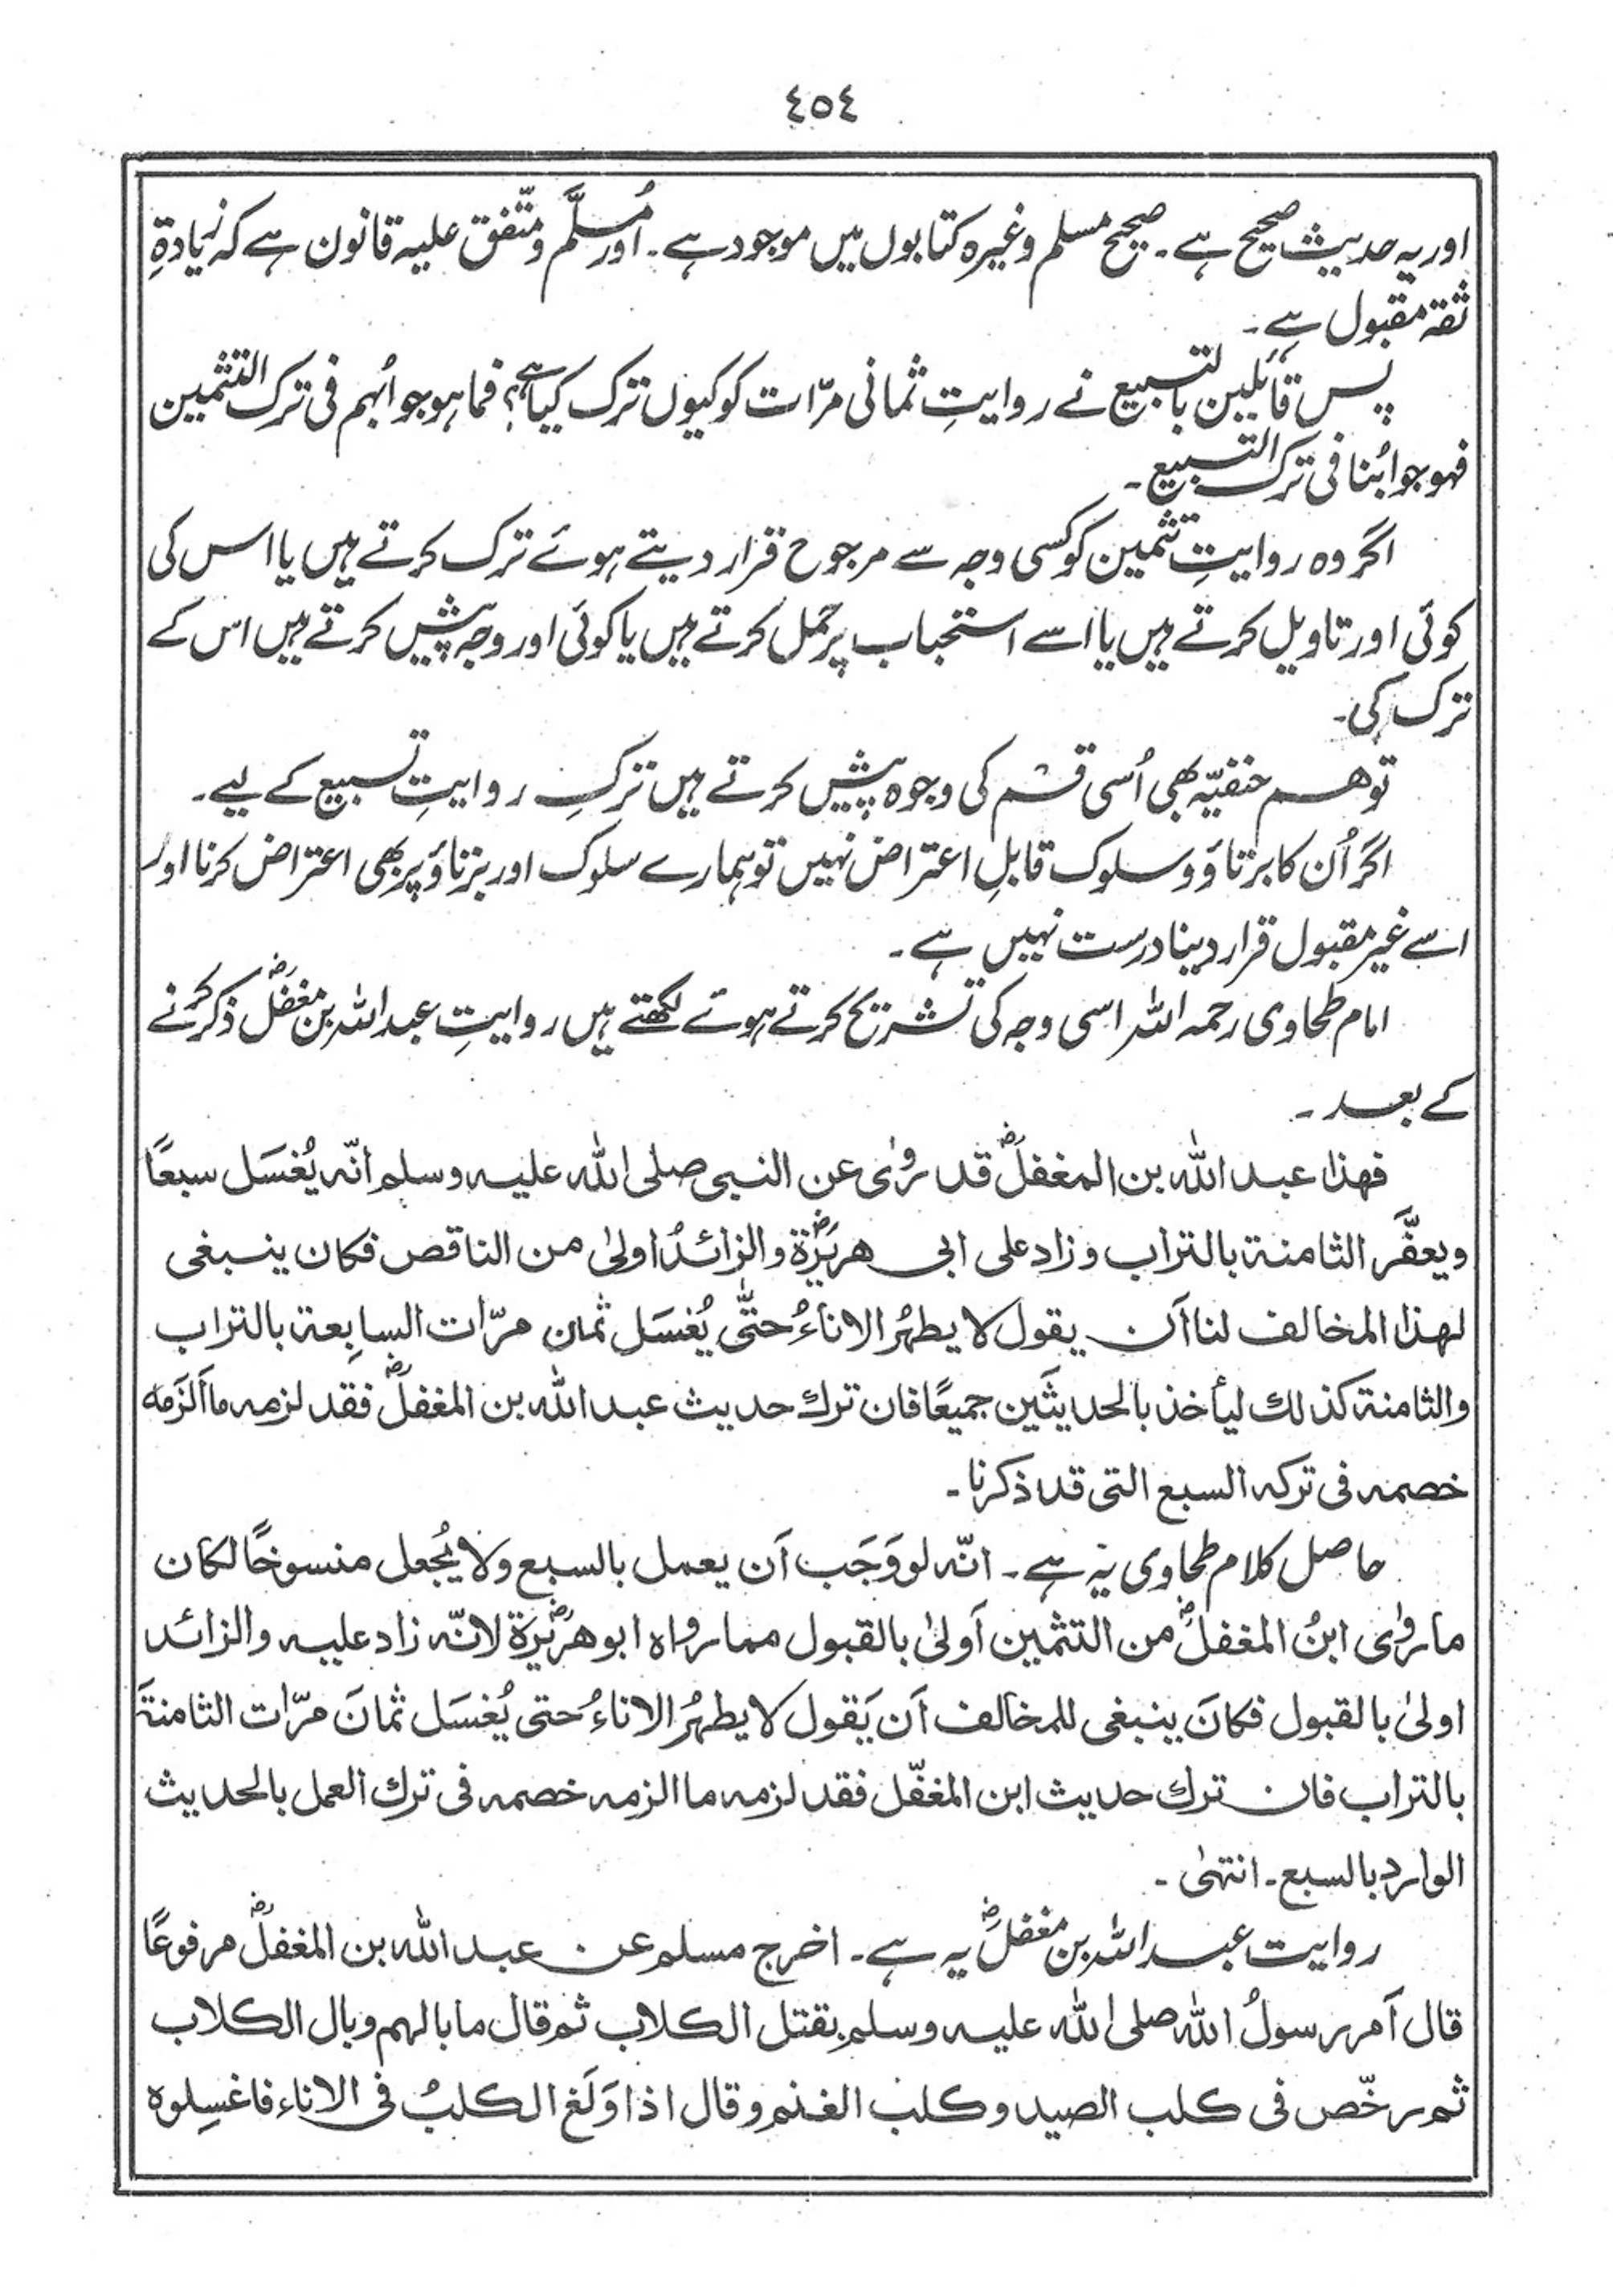 ٤٥٤
اور یہ حدیث صحیح ہے ۔ صحیح مسلم وغیرہ کتابوں میں موجود ہے ۔ اور مُسلَّم و متّفق علیہ قانون ہے کہ زیادۃِ
ثقۃ مقبول ہے ۔
پس قائلین بالتسبیع نے روایتِ ثمانی مرّات کو کیوں ترک کیا ہے؟ فما ہو جوابُہم فی ترک التثمین
فہو جوابُنا فی ترک التسبیع ۔
اگر وہ روایتِ تثمین کو کسی وجہ سے مرجوح قرار دیتے ہوئے ترک کرتے ہیں یا اس کی
کوئی اور تاویل کرتے ہیں یا اسے استحباب پر حمل کرتے ہیں یا کوئی اور وجہ پیش کرتے ہیں اس کے
ترک کی ۔
تو ہم حنفیّہ بھی اُسی قسم کی وجوہ پیش کرتے ہیں ترکِ روایتِ تسبیع کے لیے ۔
اگر اُن کا برتاؤ و سلوک قابلِ اعتراض نہیں تو ہمارے سلوک اور برتاؤ پر بھی اعتراض کرنا اور
اسے غیر مقبول قرار دینا درست نہیں ہے ۔
امام طحاوی رحمہ اللہ اسی وجہ کی تشریح کرتے ہوئے لکھتے ہیں روایتِ عبد اللہ بن مغفلؓ ذکر کرنے
کے بعد ۔
فهذا عبد الله بن المغفلؓ قد روٰى عن النبى صلى الله عليه وسلم انّه يُغسَل سبعًا
ويعفَّر الثامنة بالتراب وزاد على ابى هريرةؓ والزائدُ اولىٰ من الناقص فكان ينبغى
لهذا المخالف لنا أن يقول لا يطهُر الاناءُ حتّى يُغسَل ثمان مرّات السابِعة بالتراب
والثامنة كذلك ليأخذ بالحديثَين جميعًا فان ترك حديث عبد الله بن المغفلؓ فقد لزمه ما ألزَمه
خصمه فى تركه السبع التى قد ذكرنا ۔
حاصل کلام طحاوی یہ ہے ۔ انّه لو وَجَب أن يعمل بالسبع ولا يُجعل منسوخًا لكان
ما روٰى ابنُ المغفلؓ من التثمين أولىٰ بالقبول مما رواه ابو هريرةؓ لانّه زاد عليه والزائد
اولىٰ بالقبول فكانَ ينبغى للمخالف أن يَقول لا يطهُر الاناءُ حتى يُغسَل ثمانَ مرّات الثامنةَ
بالتراب فان ترك حديث ابن المغفّل فقد لزمه ما الزمه خصمه فى ترك العمل بالحديث
الوارد بالسبع ۔ انتهىٰ ۔
روایت عبد اللہ بن مغفلؓ یہ ہے ۔ اخرج مسلم عن عبد الله بن المغفلؓ مرفوعًا
قال أمر رسولُ الله صلى الله عليه وسلم بقتل الكلاب ثم قال ما بالهم وبال الكلاب
ثم رخّص فى كلب الصيد وكلب الغنم وقال اذا وَلَغ الكلبُ فى الاناء فاغسِلوه